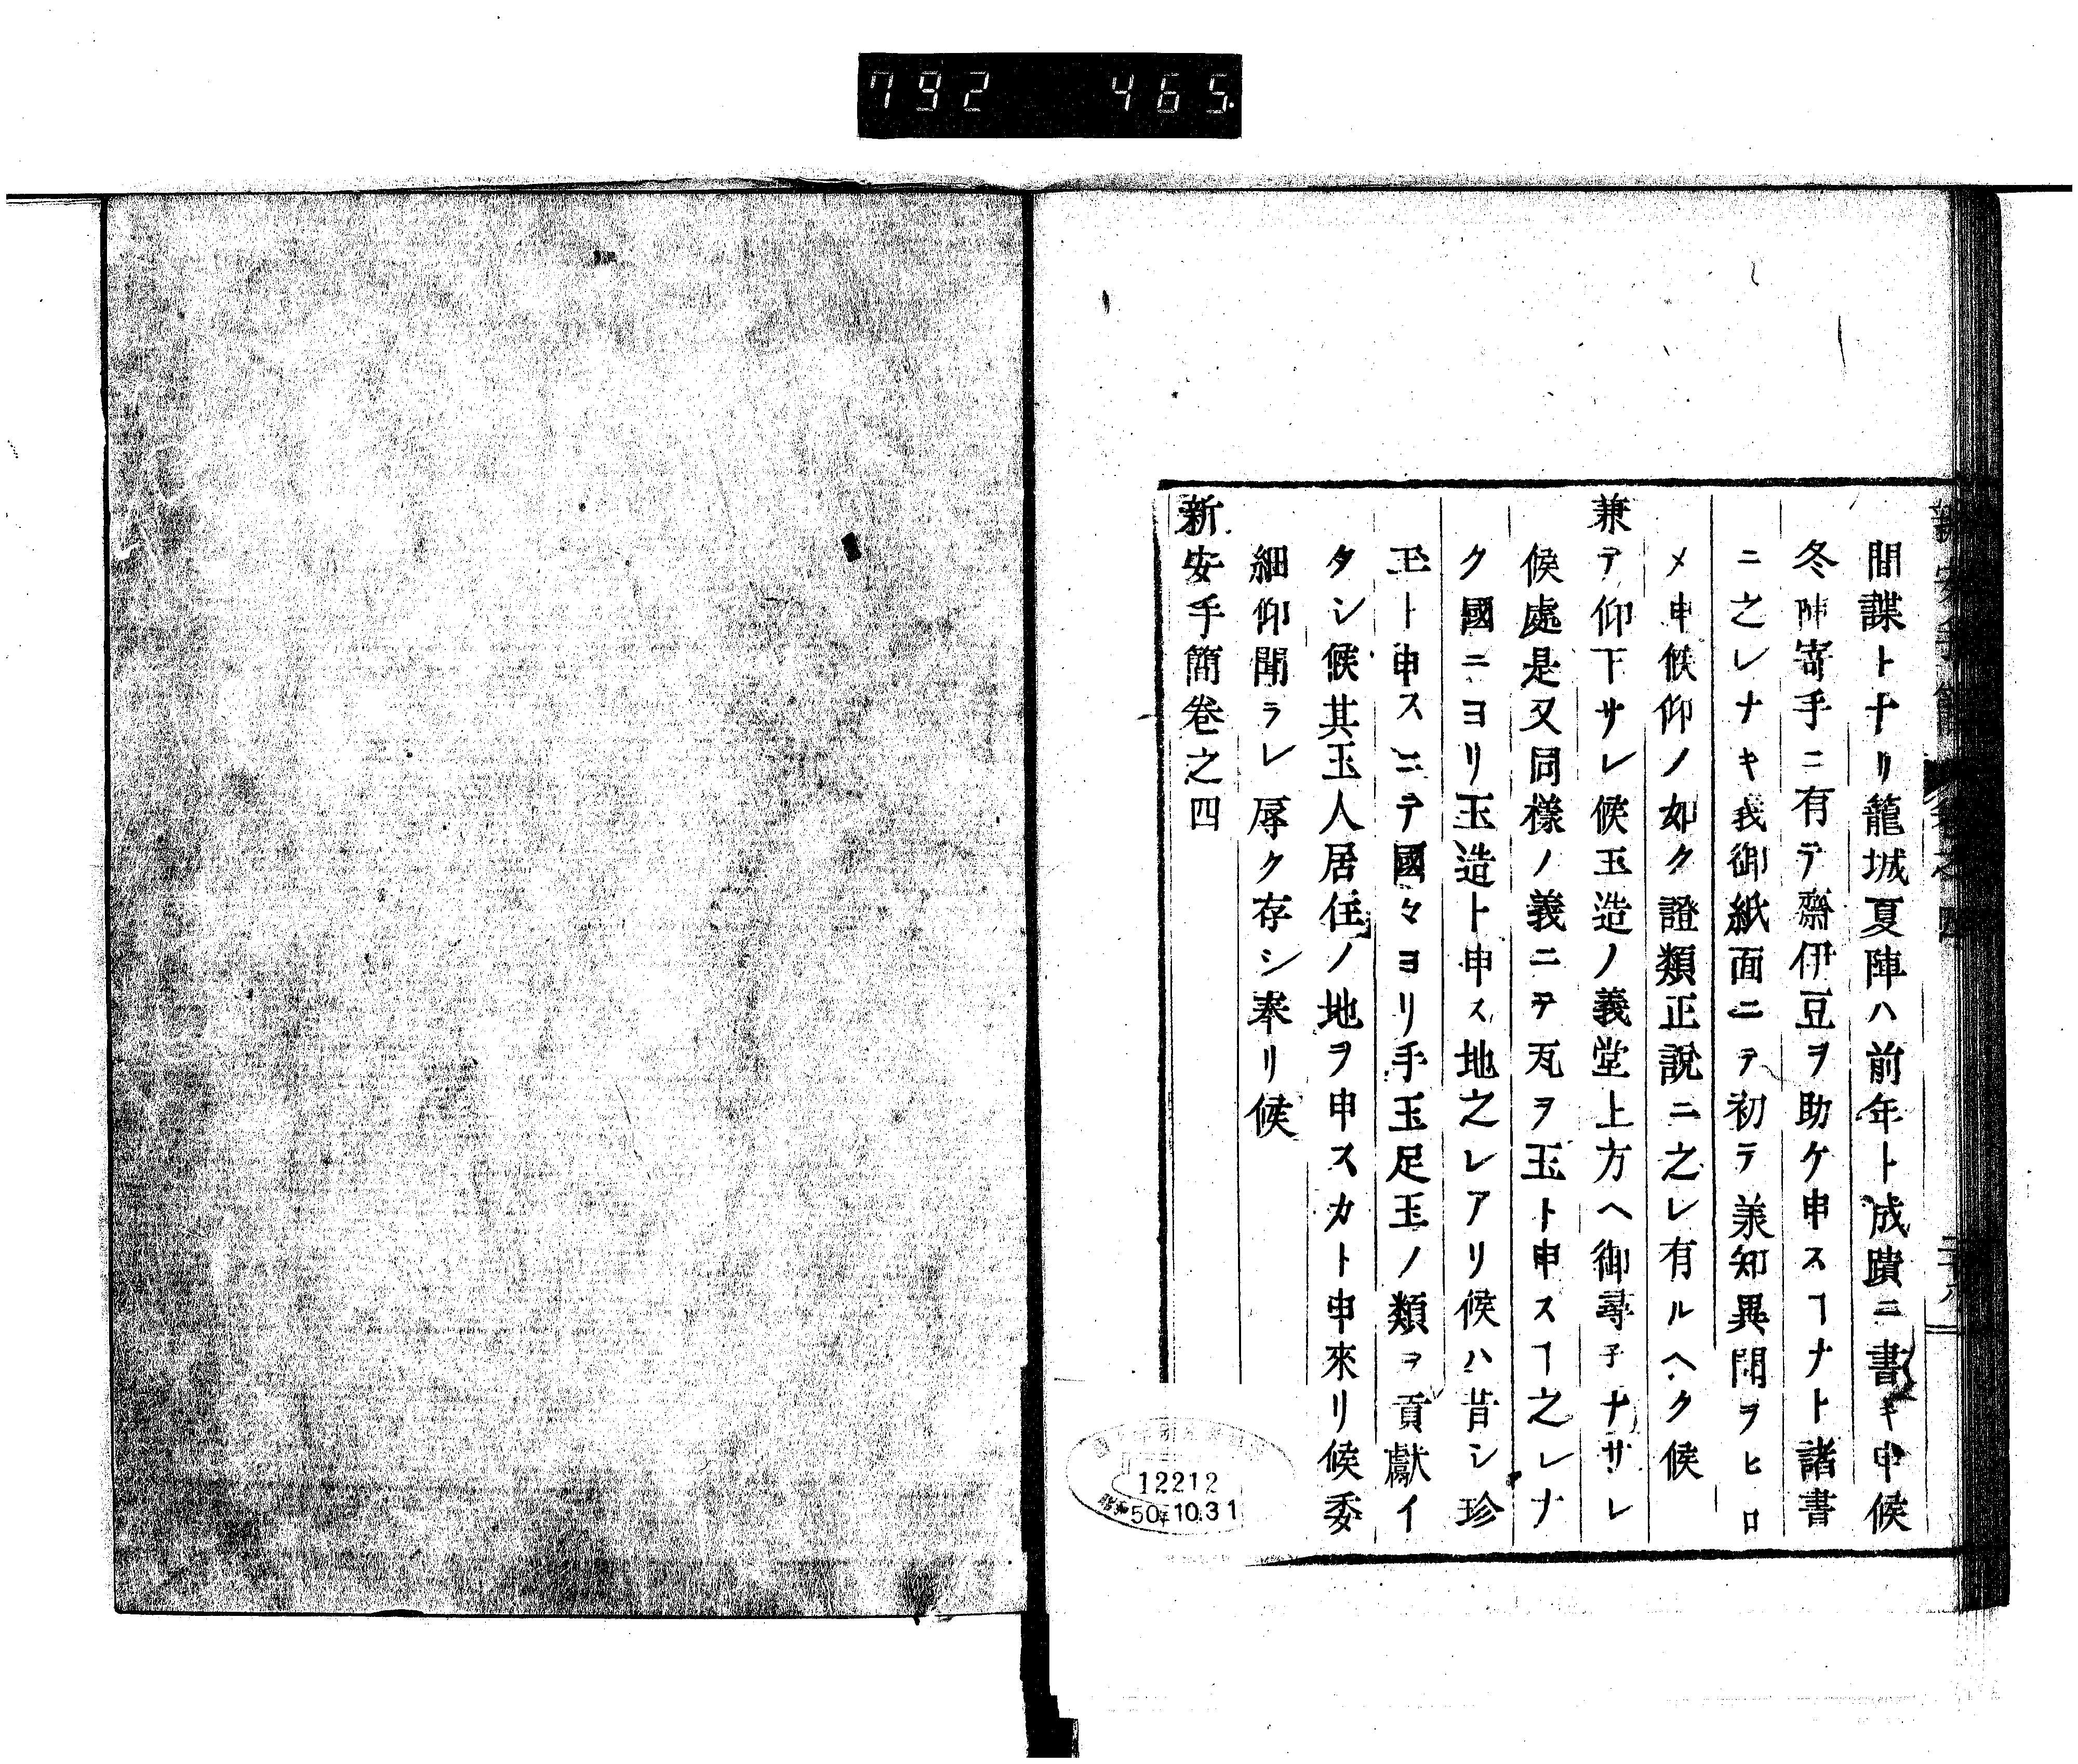 792 465
間諜トナリ籠城夏陣ハ前年ト成蹟ニ書キ申候
冬陣寄手ニ有テ齋伊豆ヲ助ケ申スヿナト諸書
ニ之レナキ義御紙面ニテ初テ兼知異聞ヲヒロ
メ申候仰ノ如ク證類正說ニ之レ有ルヘク候
兼テ仰下サレ候玉造ノ義堂上方ヘ御尋子ナサレ
候處是又同樣ノ義ニテ瓦ヲ玉ト申スヿ之レナ
ク國ニヨリ玉造ト申ス地之レアリ候ハ昔シ珍
玉ト申スニテ國々ヨリ手玉足玉ノ類ヲ貢獻イ
タシ候其玉人居住ノ地ヲ申スカト申來リ候委
細仰聞ラレ辱ク存シ奉リ候
新安手簡卷之四
12212
昭和50年10.31